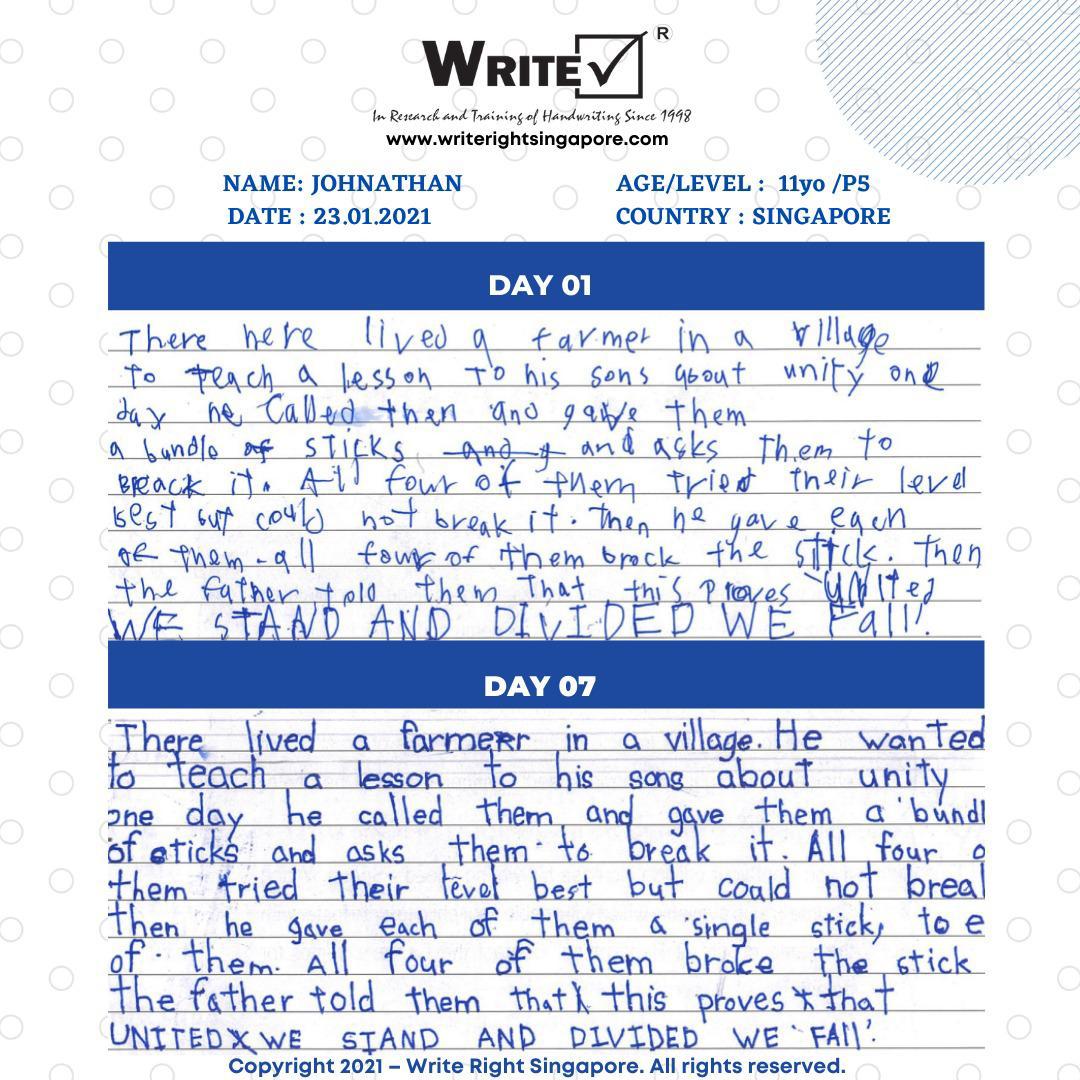 WRITE ®
In Research and Training of Handwriting Since 1998
www.writerightsingapore.com
NAME: JOHNATHAN
AGE/LEVEL : 11yo /P5
DATE : 23.01.2021
COUNTRY : SINGAPORE
DAY 01
There here lived a farmer in a village
to teach a lesson to his sons about unity one
day he Called then and gave them
a bundle of sticks and g and asks them to
breack it. All four of them tried their level
best but could not break it. Then he gave each
of them - all four of them brock the stick. Then
the father told them that this proves UNITed
WE STAND AND DIVIDED WE Fall!
DAY 07
There lived a farmer in a village. He wanted
to teach a lesson to his sons about unity
one day he called them and gave them a bundl
of sticks and asks them to break it. All four o
them tried their level best but could not brea
then he gave each of them a single stick, to e
of them. All four of them broke the stick
the father told them that this proves that
UNITED WE STAND AND DIVIDED WE FAll'.
Copyright 2021 – Write Right Singapore. All rights reserved.